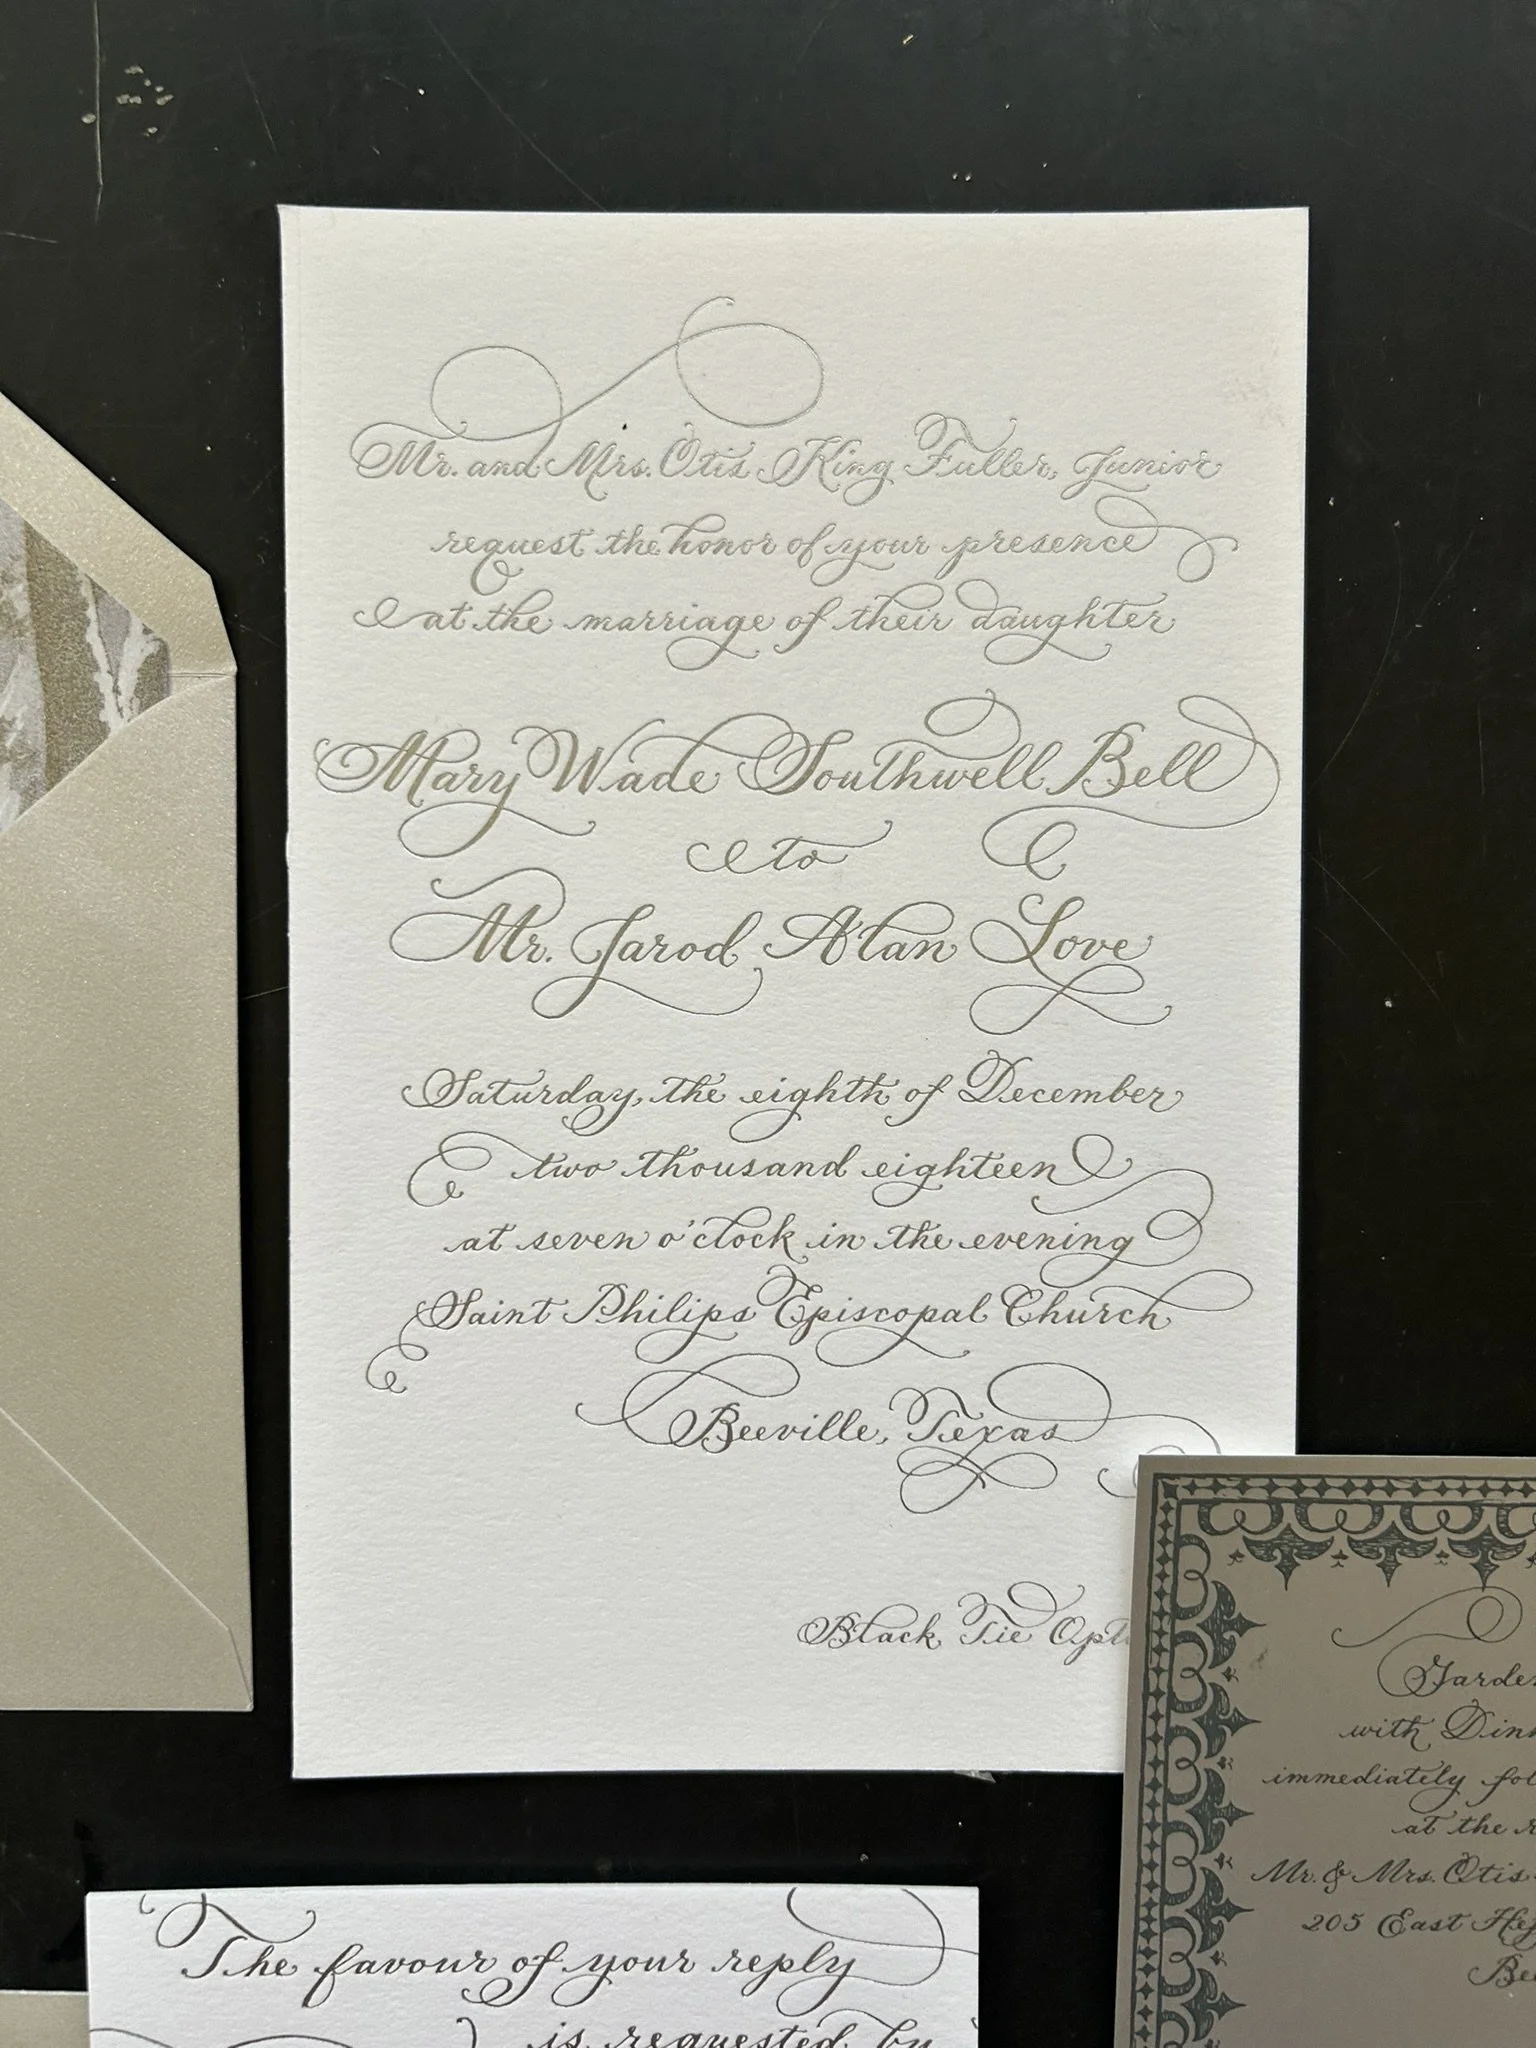 Mr. and Mrs. Otis King Fuller, Junior
request the honor of your presence
at the marriage of their daughter
Mary Wade Southwell Bell
to
Mr. Jarod Alan Love
Saturday, the eighth of December
two thousand eighteen
at seven o'clock in the evening
Saint Philips Episcopal Church
Beeville, Texas
Black Tie
with
immediately
at the
Mr. & Mrs. Otis
205 East
The favour of your reply
is requested by